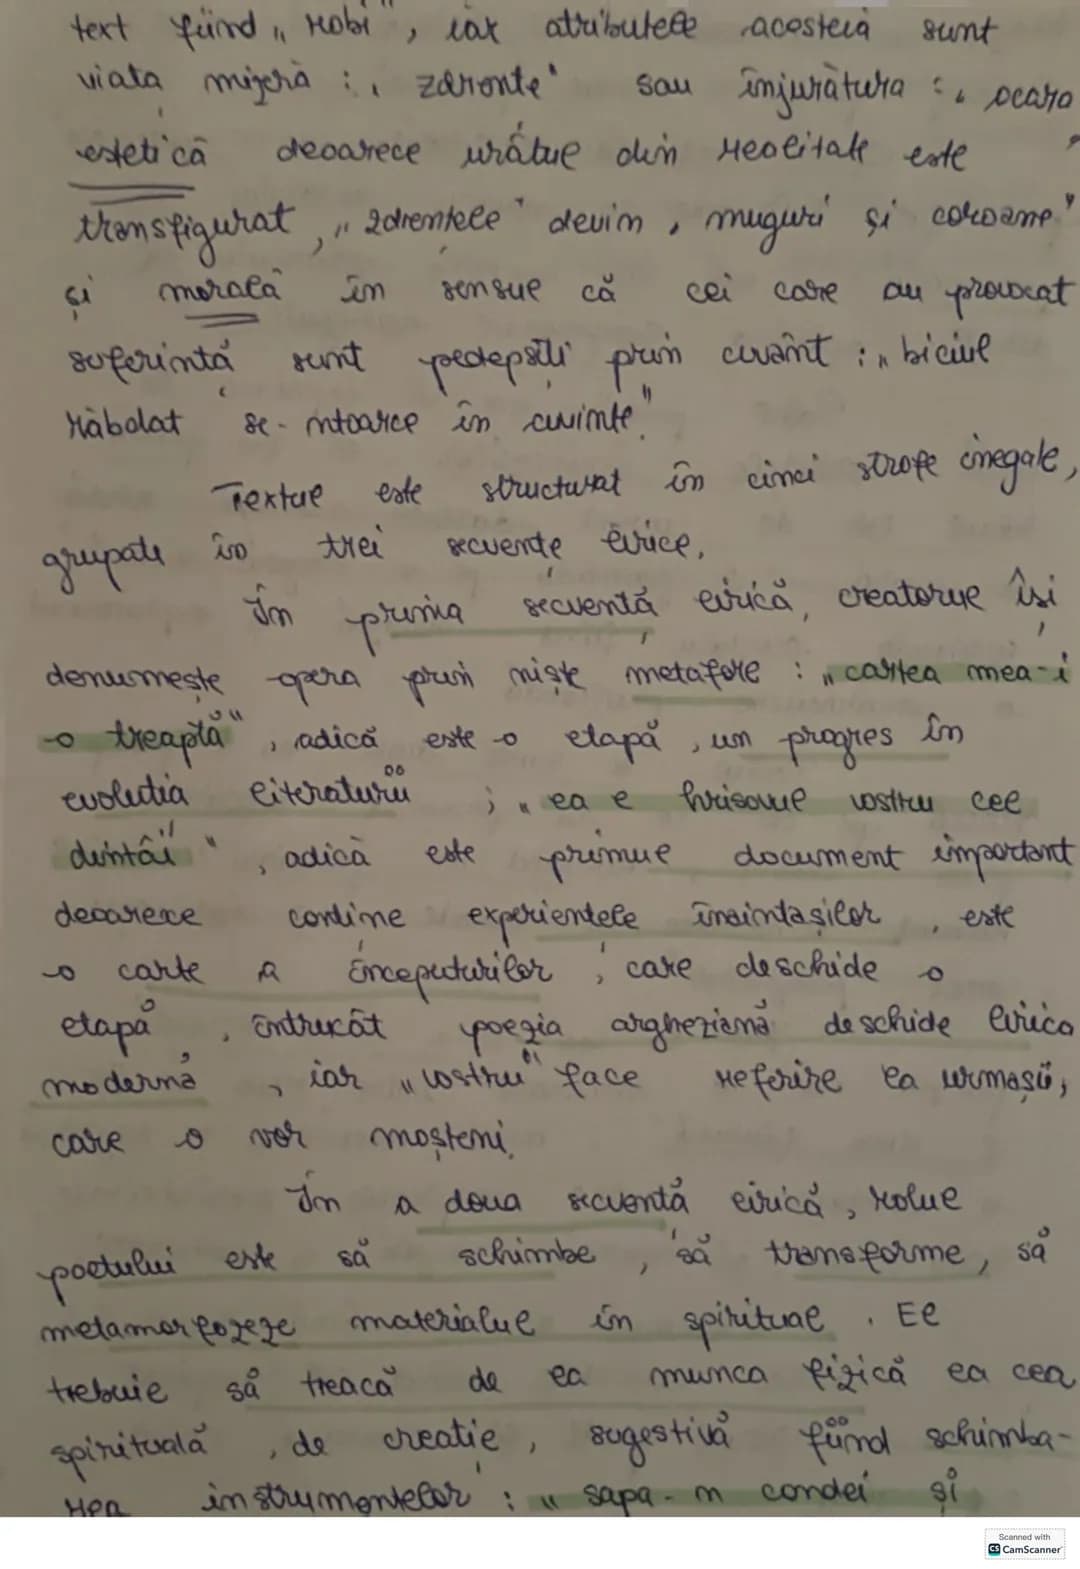 text fiind „robi", iar atributele acesteia sunt
viata mizeră : „zdrente" sau înjurătura : „ocara
estetică deoarece urâtul din realitate este
transfigurat, „zdrentele" devin „muguri și coroane"
și morală în sensul că cei care au provocat
suferintă sunt pedepsiti prin cuvânt : „biciul
răbdat se-ntoarce în cuvinte".
Textul este structurat în cinci strofe inegale,
grupate în trei secvente lirice.
În prima secventă lirică, creatorul își
denumește opera prin niște metafore : „cartea mea-i
o treaptă", adică este o etapă, un progres în
evolutia literaturii ; „ea e hrisovul vostru cel
dintâi", adică este primul document important
deoarece contine experientele înaintașilor, este
o carte a începuturilor, care deschide o
etapă, întrucât poezia argheziană deschide lirica
modernă, iar „vostru" face referire la urmașii,
care o vor moșteni.
În a doua secventă lirică, rolul
poetului este să schimbe, să transforme, să
metamorfozeze materialul în spiritual. El
trebuie să treacă de la munca fizică la cea
spirituală, de creatie, sugestivă fiind schimba-
rea instrumentelor : „sapa-n condei și
Scanned with
CS CamScanner